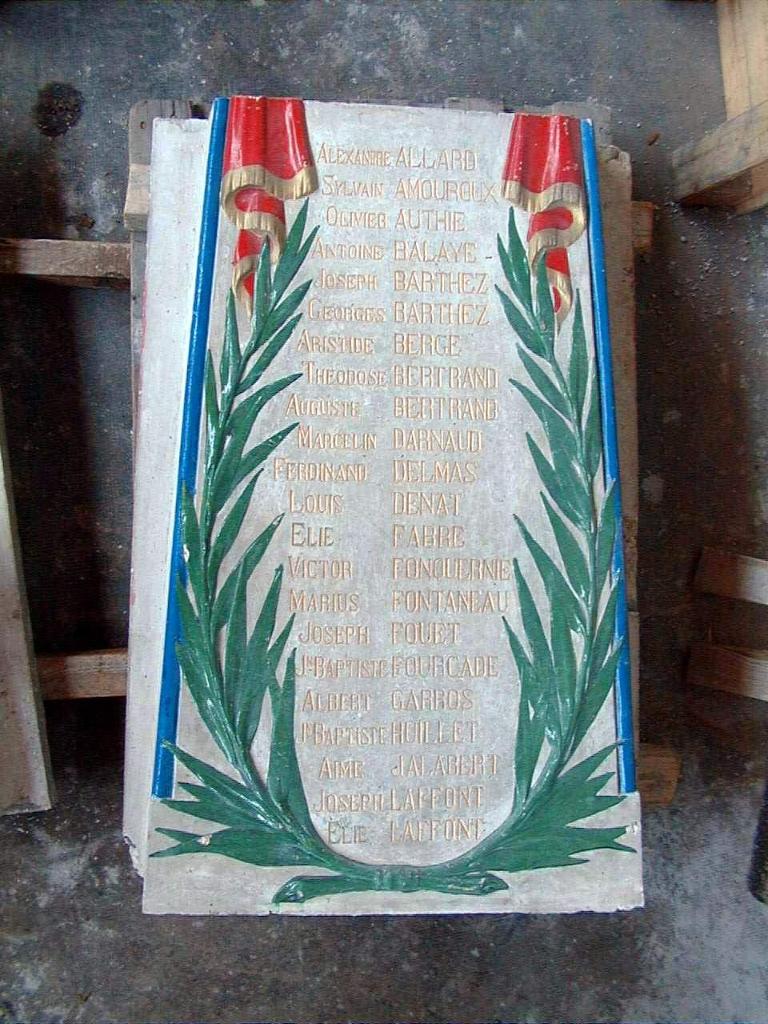 ALEXANDRE ALLARD
SYLVAIN AMOUROUX
OLIVIER AUTHIE
ANTOINE BALAYE
JOSEPH BARTHEZ
GEORGES BARTHEZ
ARISTIDE BERGE
THEODOSE BERTRAND
AUGUSTE BERTRAND
MARCELIN DARNAUD
FERDINAND DELMAS
LOUIS DENAT
ELIE FABRE
VICTOR FONQUERNIE
MARIUS FONTANEAU
JOSEPH FOUET
JN BAPTISTE FOURCADE
ALBERT GARROS
JN BAPTISTE HUILLET
AIME JALABERT
JOSEPH LAFFONT
ELIE LAFFONT